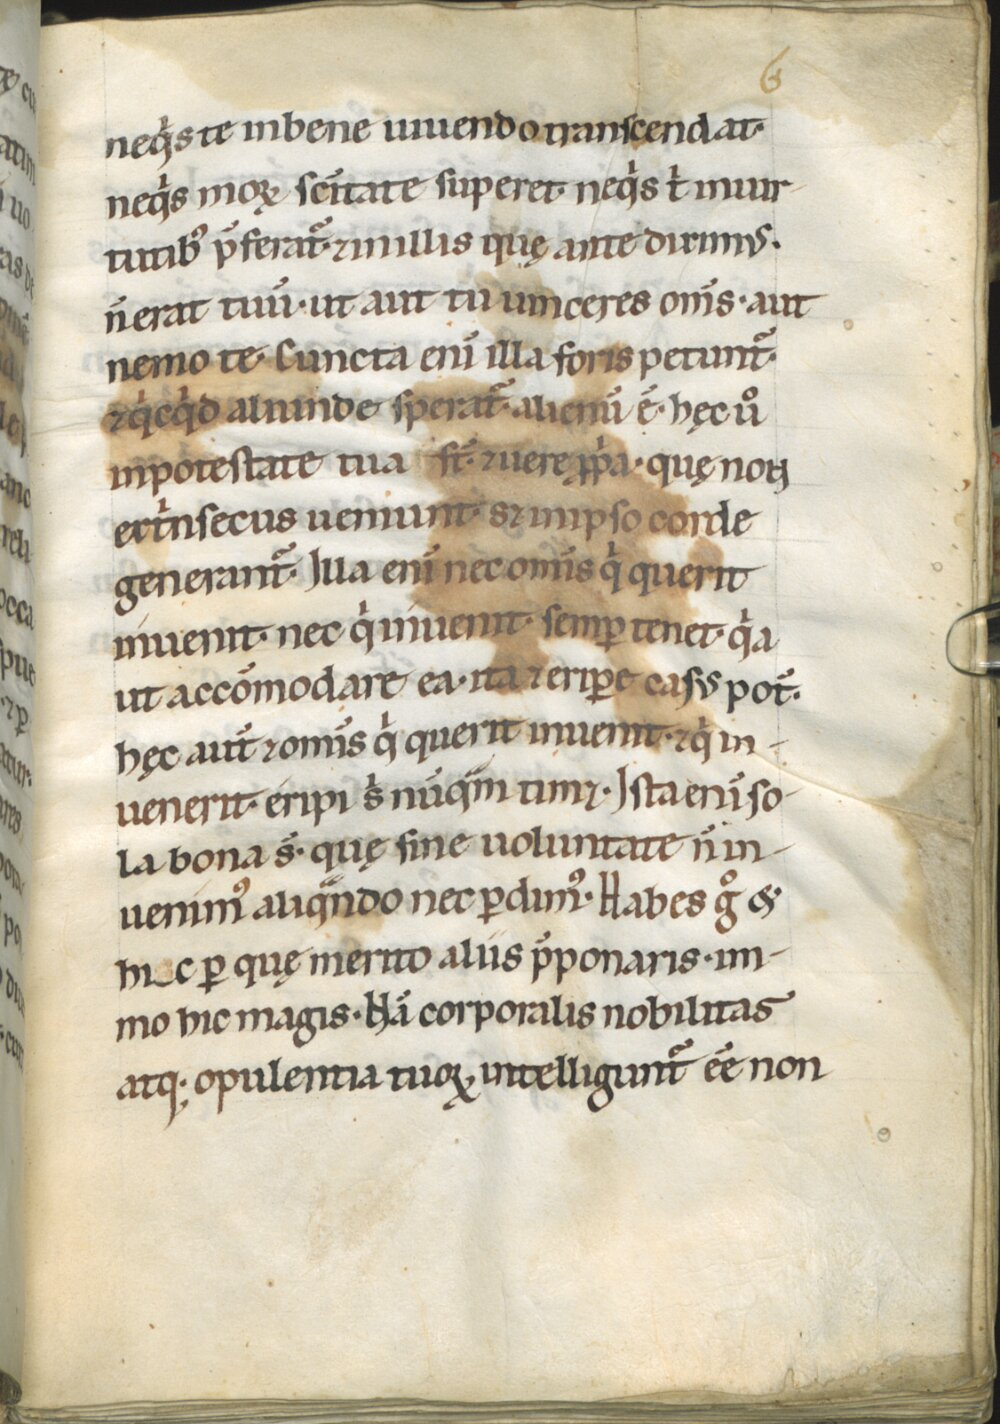 6
neq̇s te in bene uiuendo transcendat·
neq̇s moꝝ sc̄itate superet· neq̇s t̄ in uir-
tutib᷒ p̄ferat᷑· ⁊ in illis quę ante diximus.
n̄ erat tuū· ut aut tu uinceres om̄s· aut
nemo te. Cuncta eni̅ illa foris petunt᷑·
⁊ q̇cq̇d aliunde sperat᷑· alienū ē· hęc ů
in potestate tua st̄· ⁊ uere ꝓp̄a· quę non
extⁱnsecus ueniunt· s⁊ in ipso corde
generant᷑. Illa eni̅ nec om̄is q̇ querit
inuenit· nec q̇ inuenit· semꝑ tenet· q̇a
ut accōmodare ea· ita ⁊ eriꝑe casus pot̄.
hęc aut̄ ⁊ om̄is q̇ querit inuenit· ⁊ q̇ in-
uenerit· eripi ṡ nūq̄m tim⁊. Ista enī so-
la bona s̄· quę sine uoluntate n̄ in-
uenim᷒ aliq̄ndo nec ꝑdim᷒. Habes g̊ &
hic ꝑ quę merito aliis p̄ponaris· im-
mo hic magis. Nā corporalis nobilitas
atq; opulentia tuoꝝ intelligunt᷑ ēē non